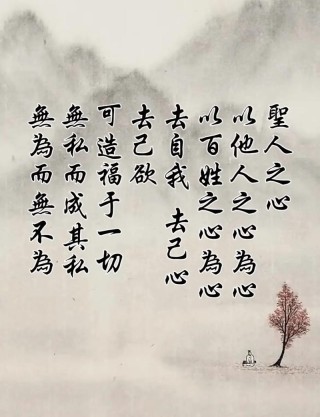 聖人之心
以他人之心為心
以百姓之心為心
去自我 去己心
去己欲
可造福于一切
無私而成其私
無為而無不為